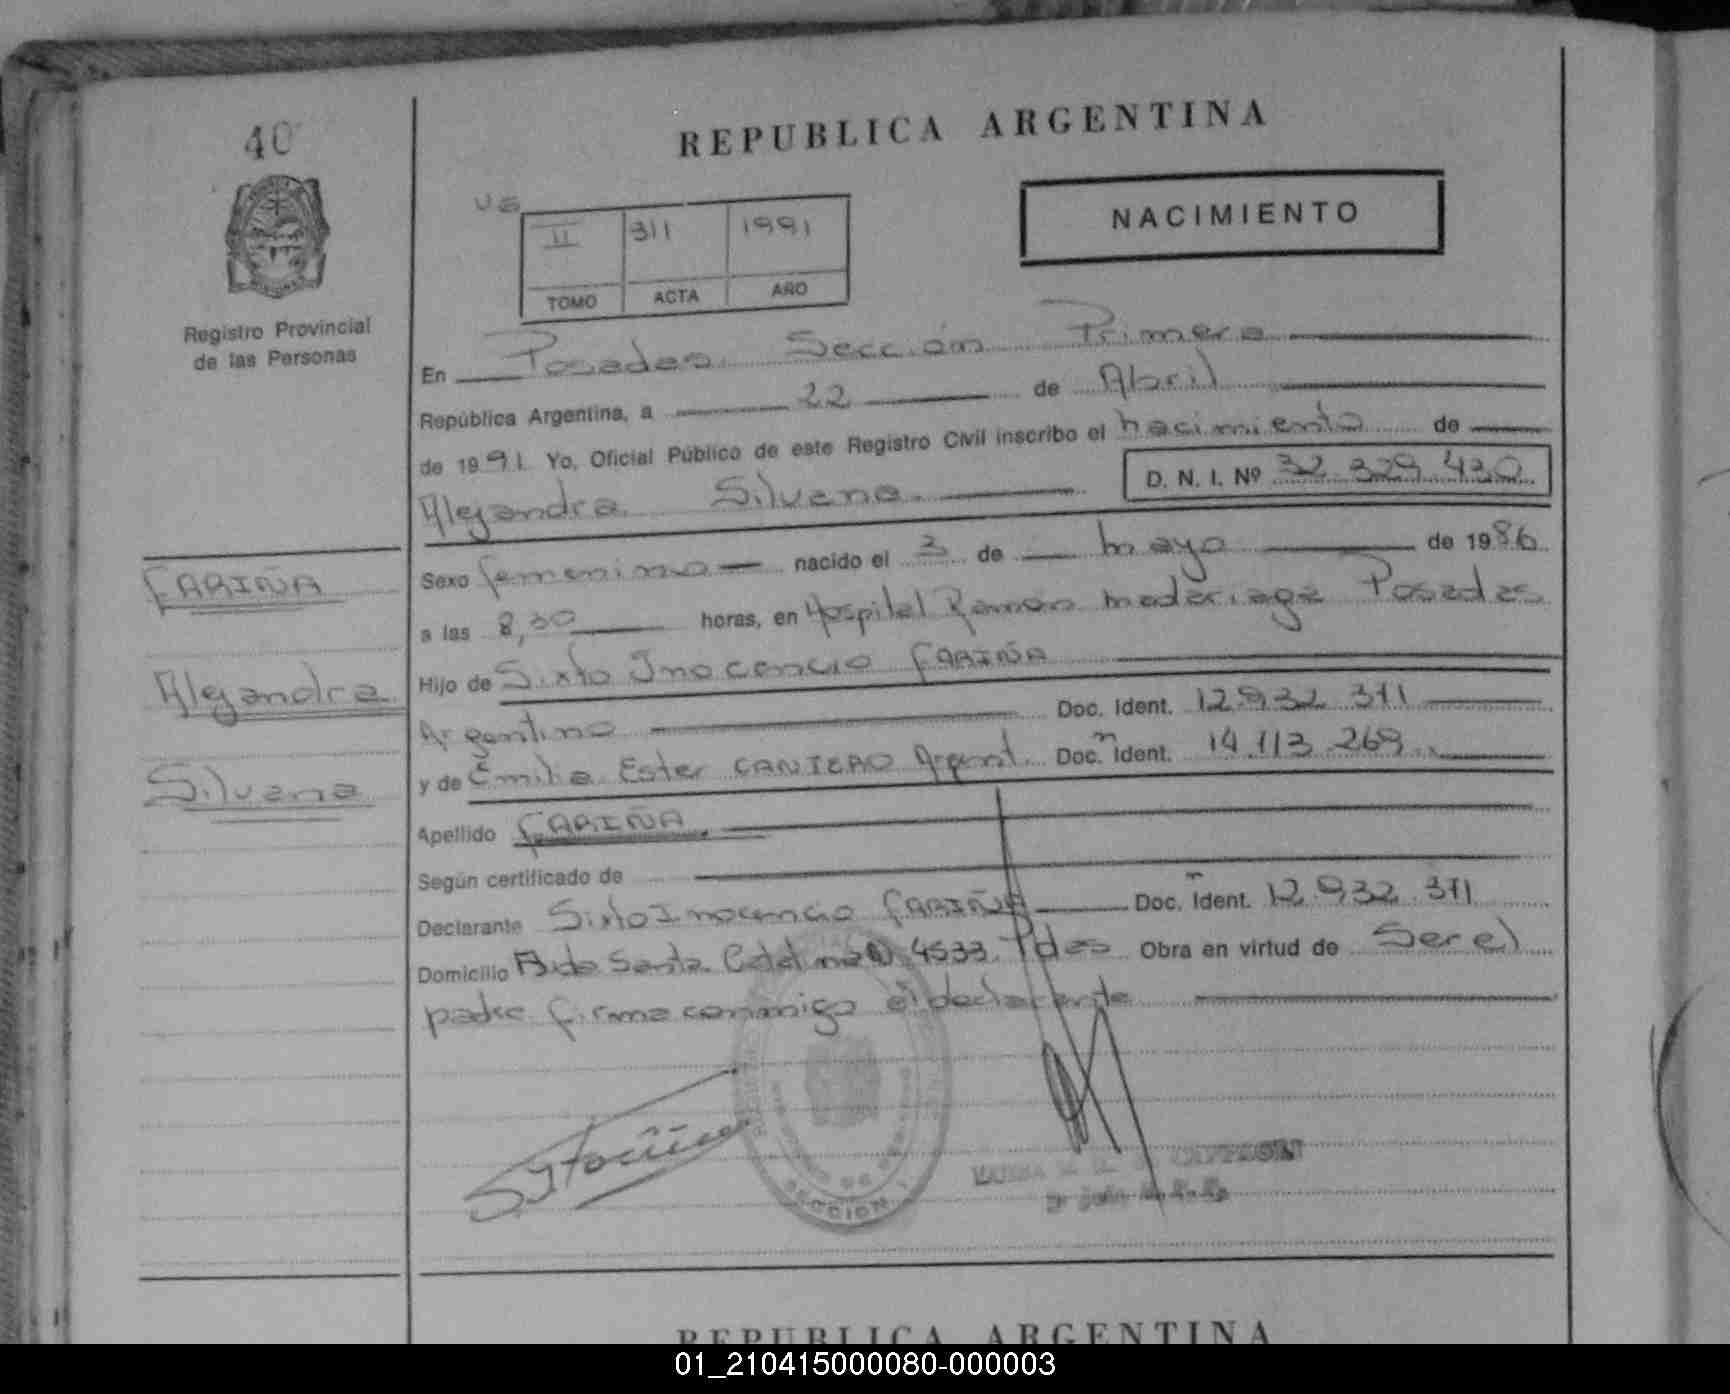 40
REPUBLICA ARGENTINA
NACIMIENTO
II 311 1991
TOMO ACTA AÑO
Registro Provincial
de las Personas
En Posadas Sección Primera
República Argentina, a 22 de Abril
de 1991. Yo, Oficial Público de este Registro Civil inscribo el nacimiento de
Alejandra Silvana D. N. I. Nº 32.329.430
FARIÑA
Alejandra
Silvana
Sexo femenino nacido el 3 de mayo de 1986
a las 8,30 horas, en Hospital Ramón Madariaga Posadas
Hijo de Sixto Inocencio FARIÑA
Argentino Doc. Ident. 12.932.311
y de Emilia Ester CANTERO Argent. Doc. Ident. 14.113.269
Apellido FARIÑA
Según certificado de
Declarante Sixto Inocencio FARIÑA Doc. Ident. 12.932.311
Domicilio Santa Catalina 4533 Pdas Obra en virtud de Ser el
padre firma conmigo el declarante
SECCION 1
REPUBLICA ARGENTINA
01_210415000080-000003